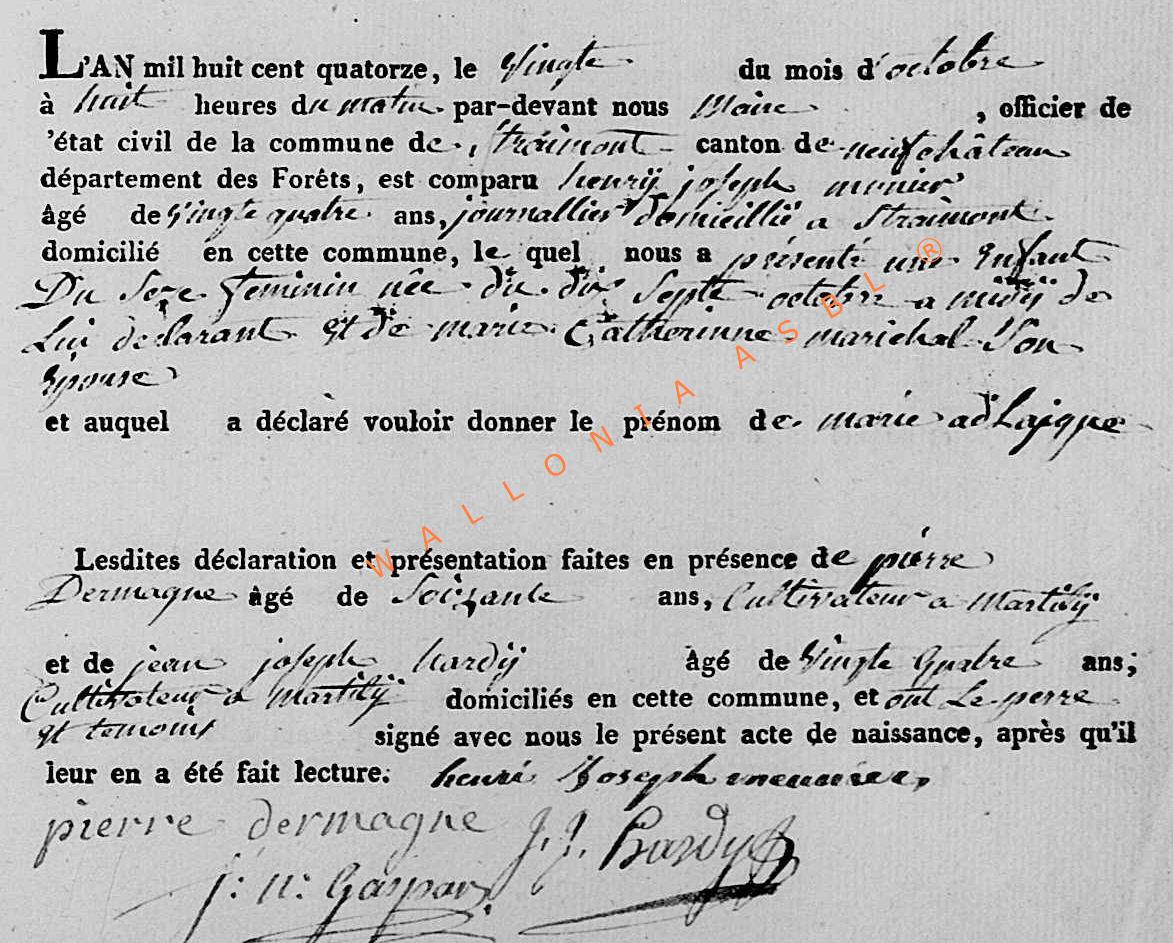 L'AN mil huit cent quatorze, le vingte du mois d'octobre
à huit heures du matin par-devant nous Maire , officier de
'état civil de la commune de Straimont canton de neufchâteau
département des Forêts, est comparu henrij joseph munier
âgé de vingte quatre ans, journallier domicillié a Straimont
domicilié en cette commune, le quel nous a présenté une Enfant
Du Sexe feminin née du dix Septe octobre a midij de
Lui declarant Et de marie Catherinne marichal Son
Epouse
et auquel a déclaré vouloir donner le prénom de marie
Lesdites déclaration et présentation faites en présence de pierre
Dermagne âgé de Soixante ans, Cultivateur a Martilij
et de jean joseph hardij âgé de vingte quatre ans;
Cultivateur a Martilij domiciliés en cette commune, et ont Le perre
Et temoins signé avec nous le présent acte de naissance, après qu'il
leur en a été fait lecture. henri Joseph meunier
pierre dermagne J. J. Hardy
j: n: Gaspar
WALLONIA ASBL ®